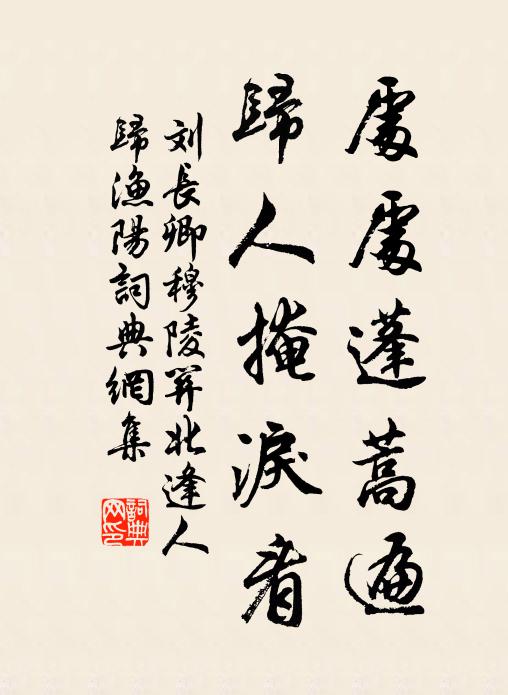 處處蓬蒿遍
歸人掩淚看
刘長卿穆陵關北逢人
歸漁陽詞典網集
詞典网印